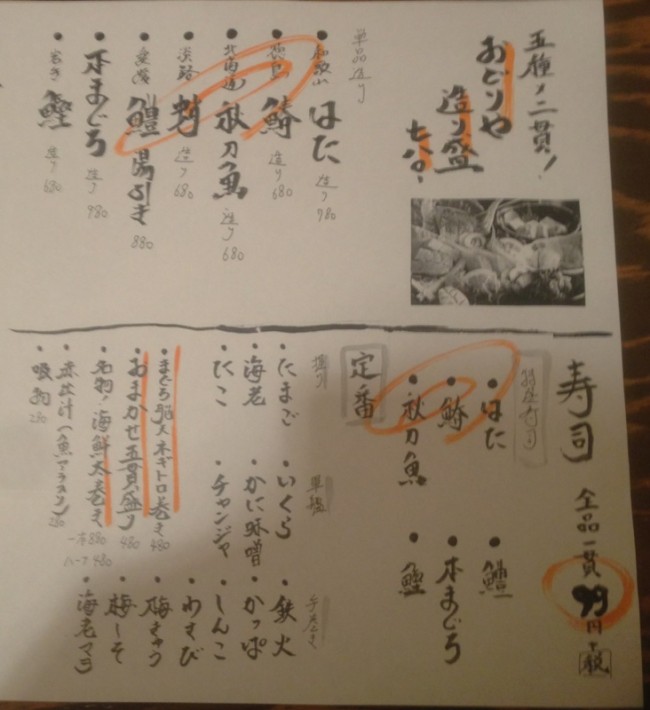 五種ノ二貫！
おどりや
造り盛
七八〇、
単品造り
和歌山
はた
造り
980
徳島
鰆
造り
680
北海道
秋刀魚
造り
680
淡路
造り
680
愛媛
鱧湯引き
880
本まぐろ
造り
980
鰹
造り
680
寿司
全品一貫
99円+税
はた
鰆
秋刀魚
鱧
本まぐろ
鰹
定番
握り
たまご
海老
たこ
軍艦
いくら
かに味噌
チャンジャ
手巻き
鉄火
かっぱ
しんこ
わさび
梅きゅう
梅しそ
海老マヨ
おまかせ五貫盛り
480
名物！海鮮太巻き
一本 880
ハーフ 480
赤だし汁（魚アラスープ）
280
吸物
280